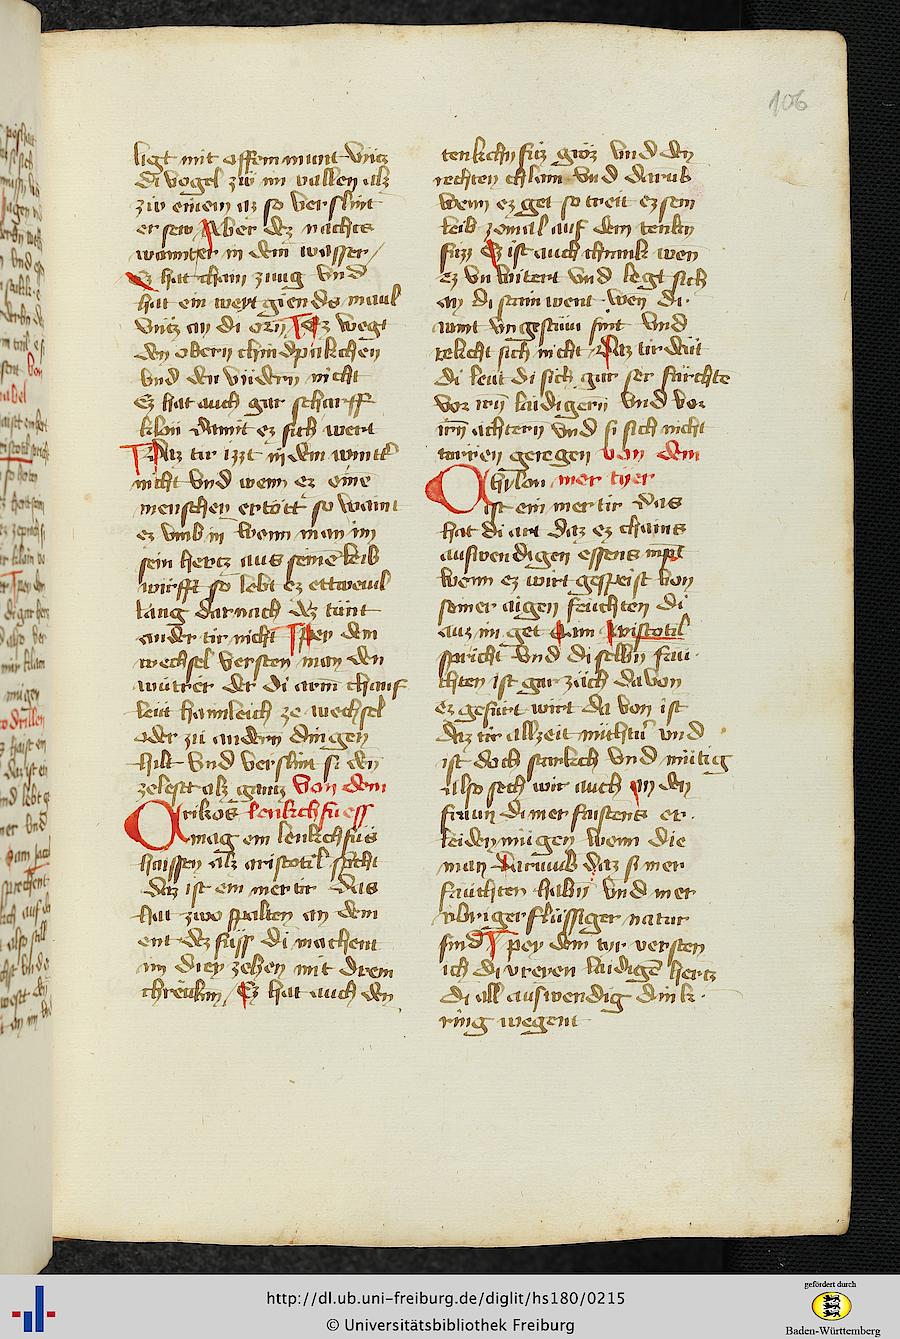 106
ligt mit offem munt untz
di vogel zw im vallen alz
zw einem az so verslint
er sew Aber dez nachts
wannter in dem wasser
Ez hat cham zung vnd
hat ein weyt giends maul
vntz an di orn Daz wegt
den obern chindpakchen
vnd den vndern nicht
Ez hat auch gar scharff
klon damit ez sich wert
Daz tir izzt in dem wintter
nicht vnd wenn ez eine
menschen ertott so waint
ez vmb in wenn man im
sein hercz aus seinem leib
würfft so lebt ez ettweuil
lang darnach dez tunt
ander tir nicht Pey dem
wechsel versten man den
wutrer der di arm chauf
leut haimleich ze wechsel
oder zu andern dingen
hilt vnd verslint si den
zelest alz gantz von dem
Orikos lenkchfuess
mag ein lenkchfus
haissen alz aristotil spricht
daz ist ein mer tir das
hat zwo spalten an dem
ent dez fuss di machent
im drey zehen mit drein
chreulein Ez hat auch den
tenkchn fuz groz vnd den
rechten chlain vnd darub
wenn ez get so treit ez sein
leib zemal auf dem tenkn
fuz Ez ist auch chrank wen
ez vnwitert vnd legt sich
an di stainwent wen di
wint vngestum sint vnd
rekcht sich nicht Daz tir deut
di leut di sich gar ser furchte
vor irn laidigern vnd vor
irn achtern vnd si sich nicht
turren geregen von dem
Ohilon mer tyer
ist ein mer tir das
hat di art daz ez chains
auswendigen essens nimpt
wenn ez wirt gespeist von
seiner aigen feuchten di
auz im get Sam Aristotil
spricht vnd di selbn feu
chten ist gar zäch da von
ez gefurt wirt da von ist
daz tir allzeit nuchtern vnd
ist doch starkch vnd mütig
also sech wir auch an den
fraun di mer fastens er
leiden mügen wenn die
man Darumb daz si mer
fäuchten habn vnd mer
ubriger flüssiger natur
sind pey dem tyr versten
ich di vreyen laidigen hertz
di all auswendig dink
ring wegent
http://dl.ub.uni-freiburg.de/diglit/hs180/0215
© Universitätsbibliothek Freiburg
gefördert durch
Baden-Württemberg